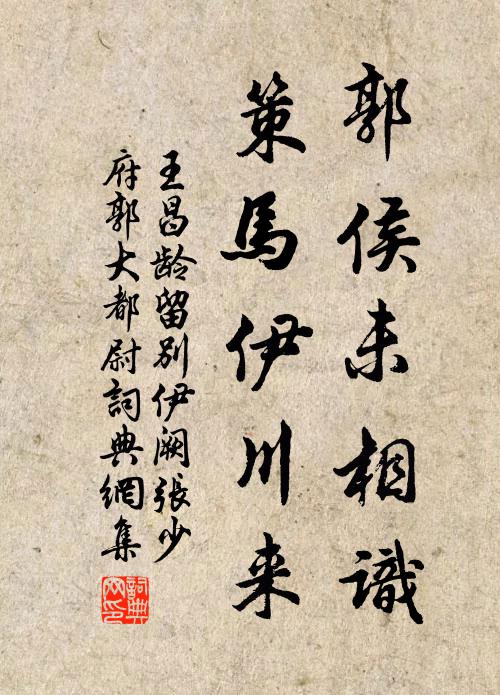 郭侯未相識
策馬伊川来
王昌龄留别伊阙張少
府郭大都尉詞典網集
詞典
网印